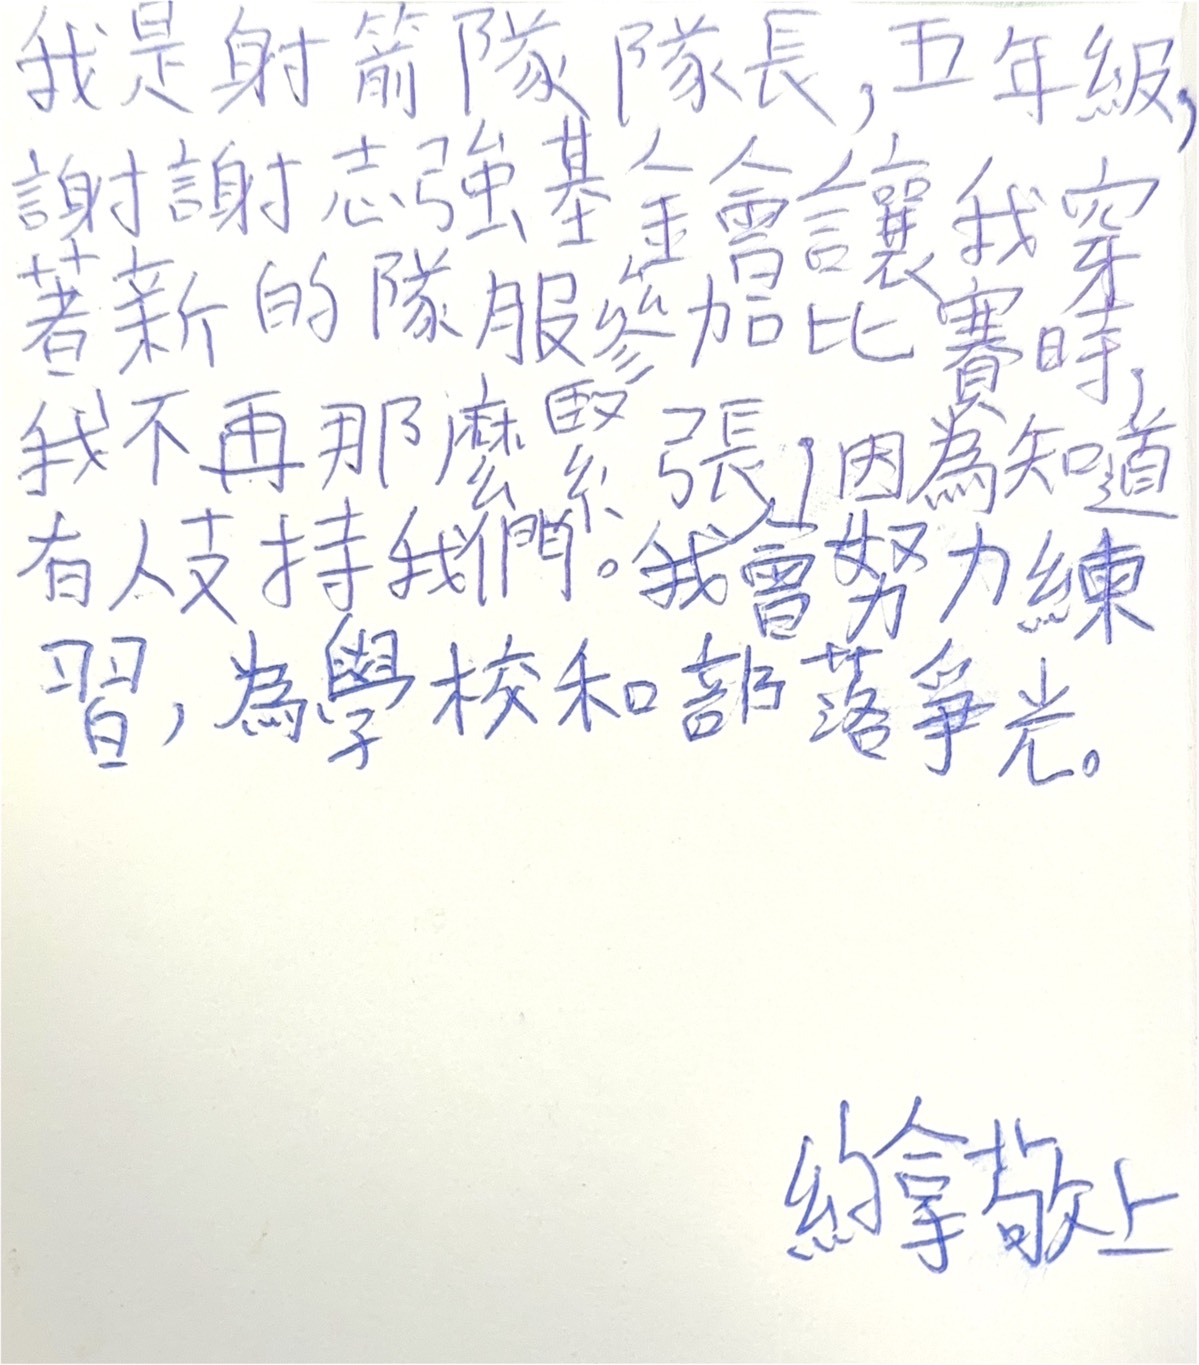 我是射箭隊隊長,五年級,
謝謝志強基金會讓我穿
著新的隊服參加比賽時,
我不再那麼緊張,因為知道
有人支持我們。我會努力練
習,為學校和部落爭光。
約拿敬上